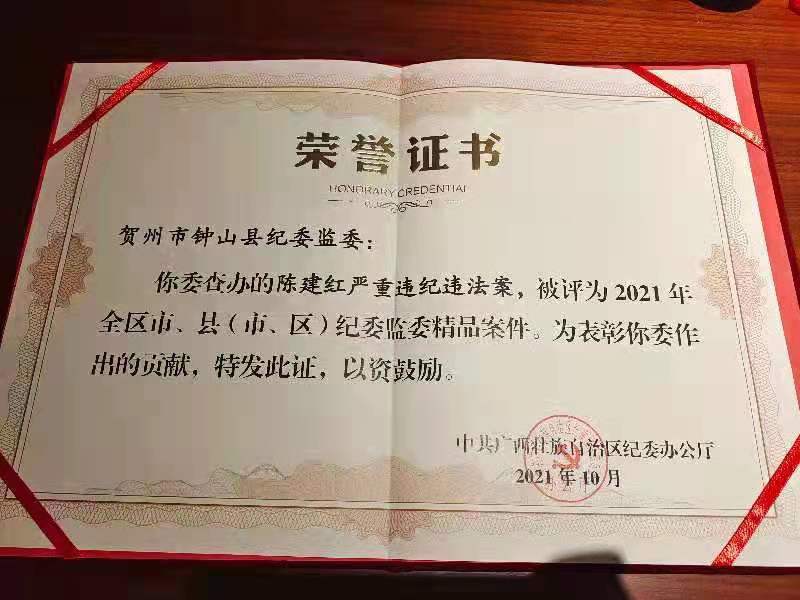 荣誉证书
HONORARY CREDENTIAL
贺州市钟山县纪委监委：
你委查办的陈建红严重违纪违法案，被评为2021年
全区市、县（市、区）纪委监委精品案件。为表彰你委作
出的贡献，特发此证，以资鼓励。
中共广西壮族自治区纪委办公厅
2021年10月